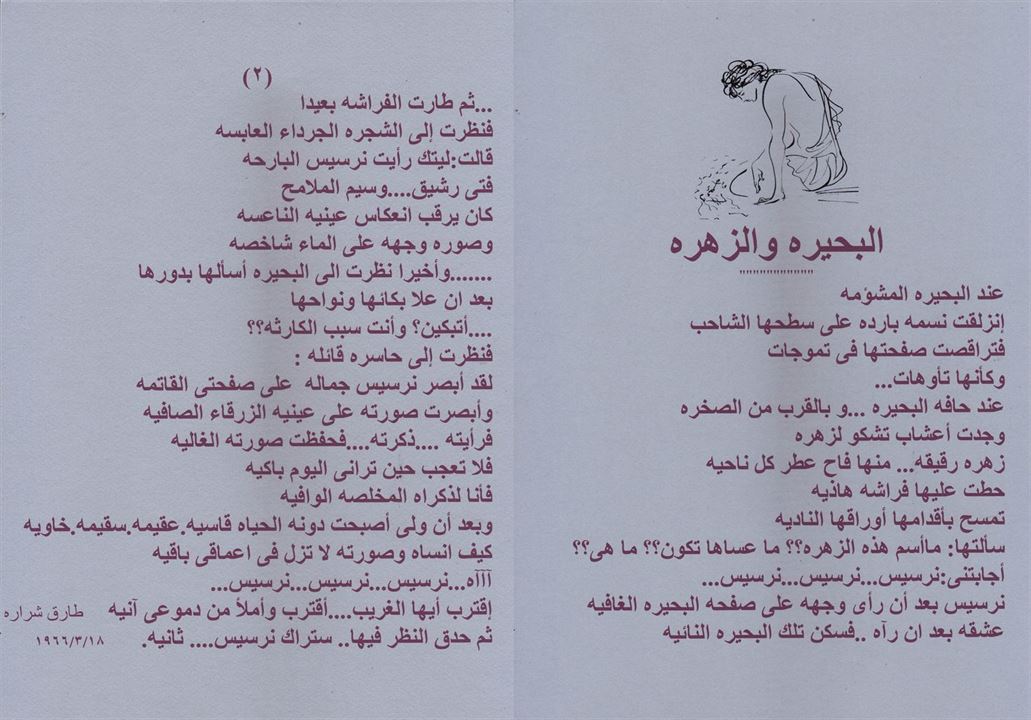 البحيره والزهره
عند البحيره المشؤمه
إنزلقت نسمه بارده على سطحها الشاحب
فتراقصت صفحتها فى تموجات
وكأنها تأوهات...
عند حافه البحيره ...و بالقرب من الصخره
وجدت أعشاب تشكو لزهره
زهره رقيقه... منها فاح عطر كل ناحيه
حطت عليها فراشه هاذيه
تمسح بأقدامها أوراقها الناديه
سألتها: ماأسم هذه الزهره؟؟ ما عساها تكون؟؟ ما هى؟؟
أجابتنى:نرسيس...نرسيس...نرسيس...
نرسيس بعد أن رأى وجهه على صفحه البحيره الغافيه
عشقه بعد ان رآه ..فسكن تلك البحيره النائيه
(٢)
...ثم طارت الفراشه بعيدا
فنظرت إلى الشجره الجرداء العابسه
قالت:ليتك رأيت نرسيس البارحه
فتى رشيق....وسيم الملامح
كان يرقب انعكاس عينيه الناعسه
وصوره وجهه على الماء شاخصه
.......وأخيرا نظرت الى البحيره أسألها بدورها
بعد ان علا بكائها ونواحها
....أتبكين؟ وأنت سبب الكارثه؟؟
فنظرت إلى حاسره قائله :
لقد أبصر نرسيس جماله على صفحتى القاتمه
وأبصرت صورته على عينيه الزرقاء الصافيه
فرأيته ....ذكرته....فحفظت صورته الغاليه
فلا تعجب حين ترانى اليوم باكيه
فأنا لذكراه المخلصه الوافيه
وبعد أن ولى أصبحت دونه الحياه قاسيه.عقيمه.سقيمه.خاويه
كيف انساه وصورته لا تزل فى اعماقى باقيه
آآآه...نرسيس...نرسيس...نرسيس...
إقترب أيها الغريب....أقترب وأملأ من دموعى آنيه
ثم حدق النظر فيها.. ستراك نرسيس.... ثانيه.
طارق شراره
١٩٦٦/٣/١٨